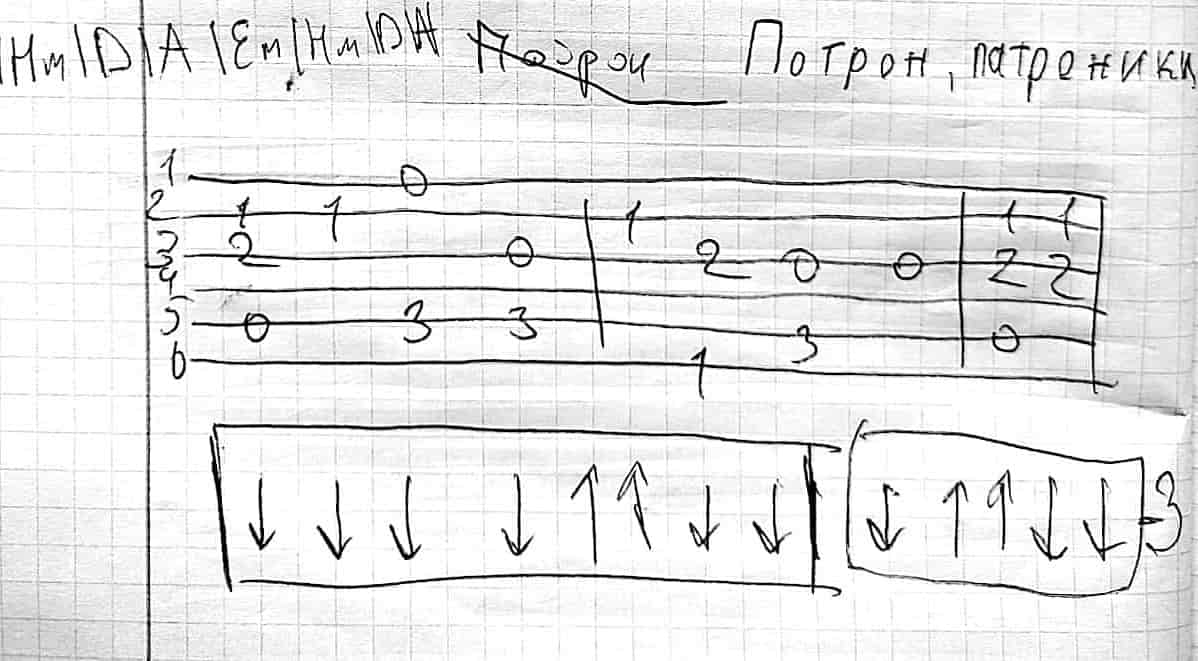 |Hm|D|A|Em|Hm|D|A Потрон, патроники
1 0
2 1 1 1 1 1
3 2 0 2 0 0 2 2
4
5 0 3 3 3 0
6 1
↓ ↓ ↓ ↓ ↑ ↑ ↓ ↓ ↓ ↑ ↑ ↓ ↓ -3